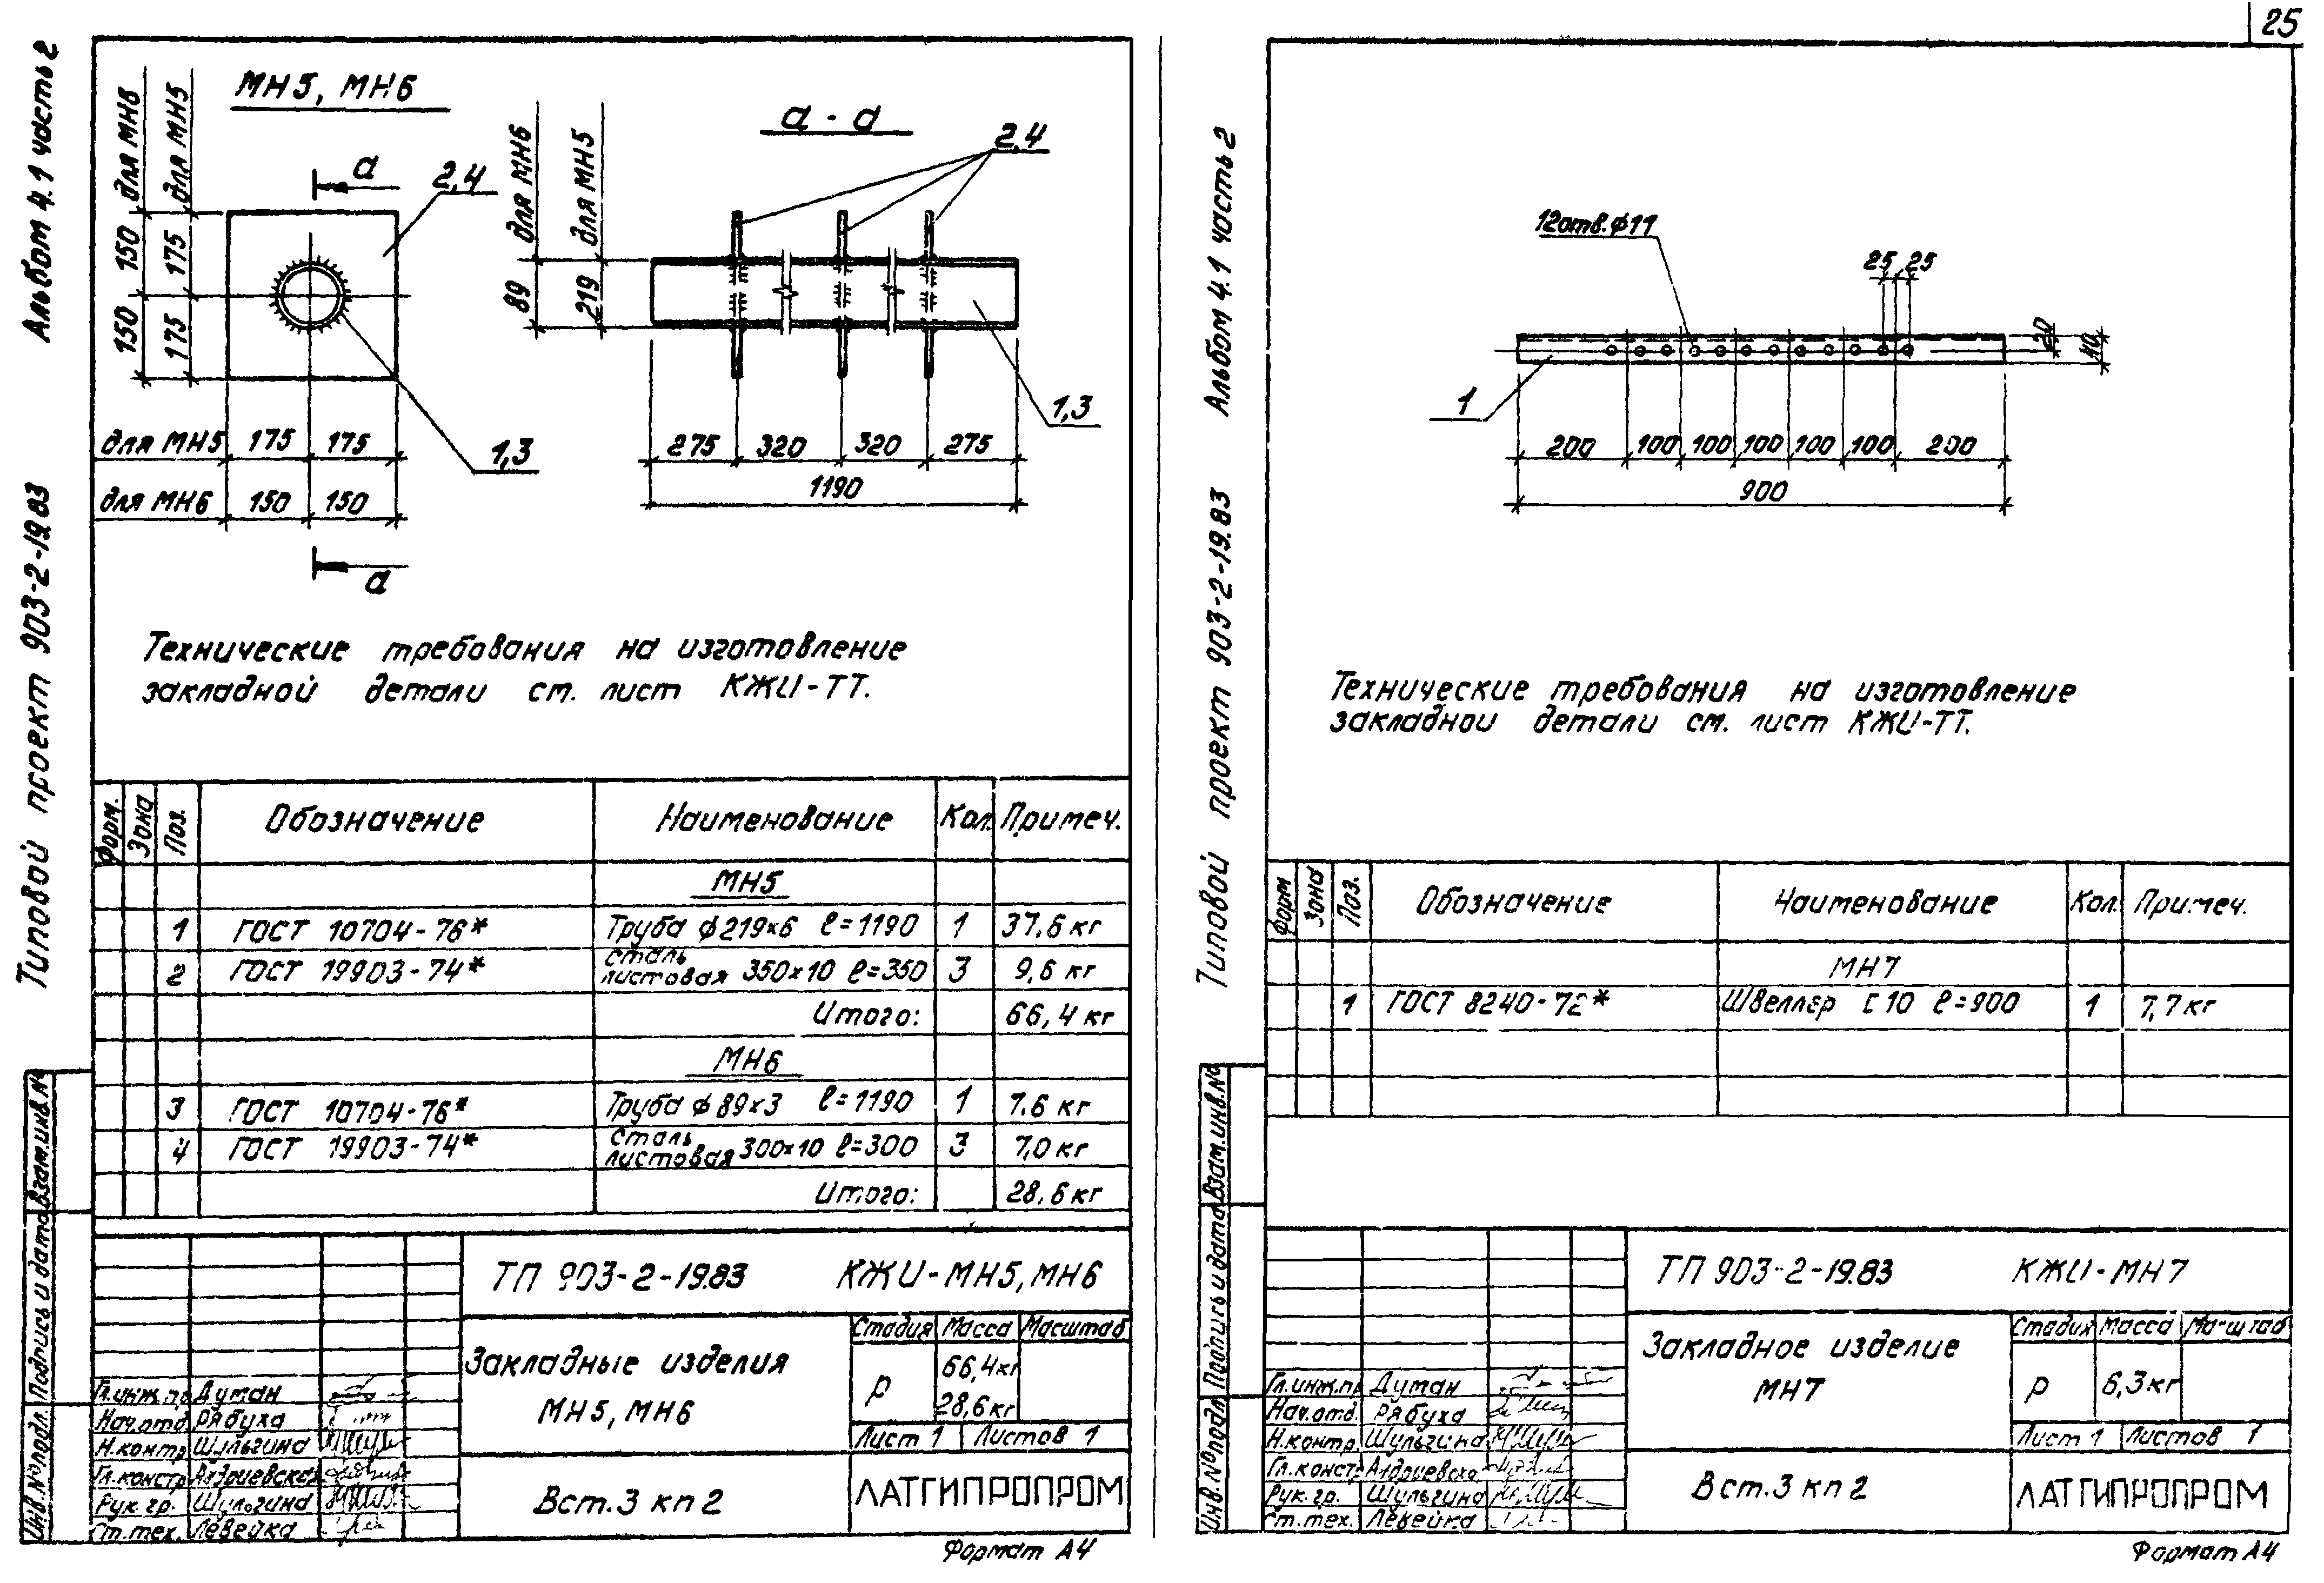 25
Альбом 4.1 часть 2
Типовой проект 903-2-19.83
МН5, МН6
а - а
для МН6
для МН5
150
175
150
175
а
2,4
1,3
для МН5 175 175
для МН6 150 150
а
для МН6
для МН5
89
219
2,4
1,3
275 320 320 275
1190
Технические требования на изготовление
закладной детали см. лист КЖИ-ТТ.
Форм. Зона Поз. Обозначение Наименование Кол. Примеч.
МН5
1 ГОСТ 10704-76* Труба ф219х6 ℓ=1190 1 37,6 кг
2 ГОСТ 19903-74* Сталь листовая 350х10 ℓ=350 3 9,6 кг
Итого: 66,4 кг
МН6
3 ГОСТ 10704-76* Труба ф89х3 ℓ=1190 1 7,6 кг
4 ГОСТ 19903-74* Сталь листовая 300х10 ℓ=300 3 7,0 кг
Итого: 28,6 кг
Инв.№подл. Подпись и дата Взам.инв.№
ТП 903-2-19.83 КЖИ-МН5, МН6
Закладные изделия
МН5, МН6
Стадия Масса Масштаб
р 66,4кг
28,6кг
Лист 1 Листов 1
Гл.инж.пр Думан
Нач.отд. Рябуха
Н.контр Шульгина
Гл.констр Андриевская
Рук.гр. Шульгина
Ст.тех. Левейка
Вст.3 кп2
ЛАТГИПРОПРОМ
Формат А4
Альбом 4.1 часть 2
Типовой проект 903-2-19.83
12отв.ф11
25 25
20
40
1
200 100 100 100 100 100 200
900
Технические требования на изготовление
закладной детали см. лист КЖИ-ТТ.
Форм Зона Поз. Обозначение Наименование Кол. Примеч.
МН7
1 ГОСТ 8240-72* Швеллер [10 ℓ=900 1 7,7 кг
Инв.№подл Подпись и дата Взам.инв.№
ТП 903-2-19.83 КЖИ-МН7
Закладное изделие
МН7
Стадия Масса Масштаб
р 6,3кг
Лист 1 Листов 1
Гл.инж.пр Думан
Нач.отд. Рябуха
Н.контр. Шульгина
Гл.констр Андриевска
Рук.гр. Шульгина
Ст.тех. Левейка
Вст.3 кп2
ЛАТГИПРОПРОМ
Формат А4